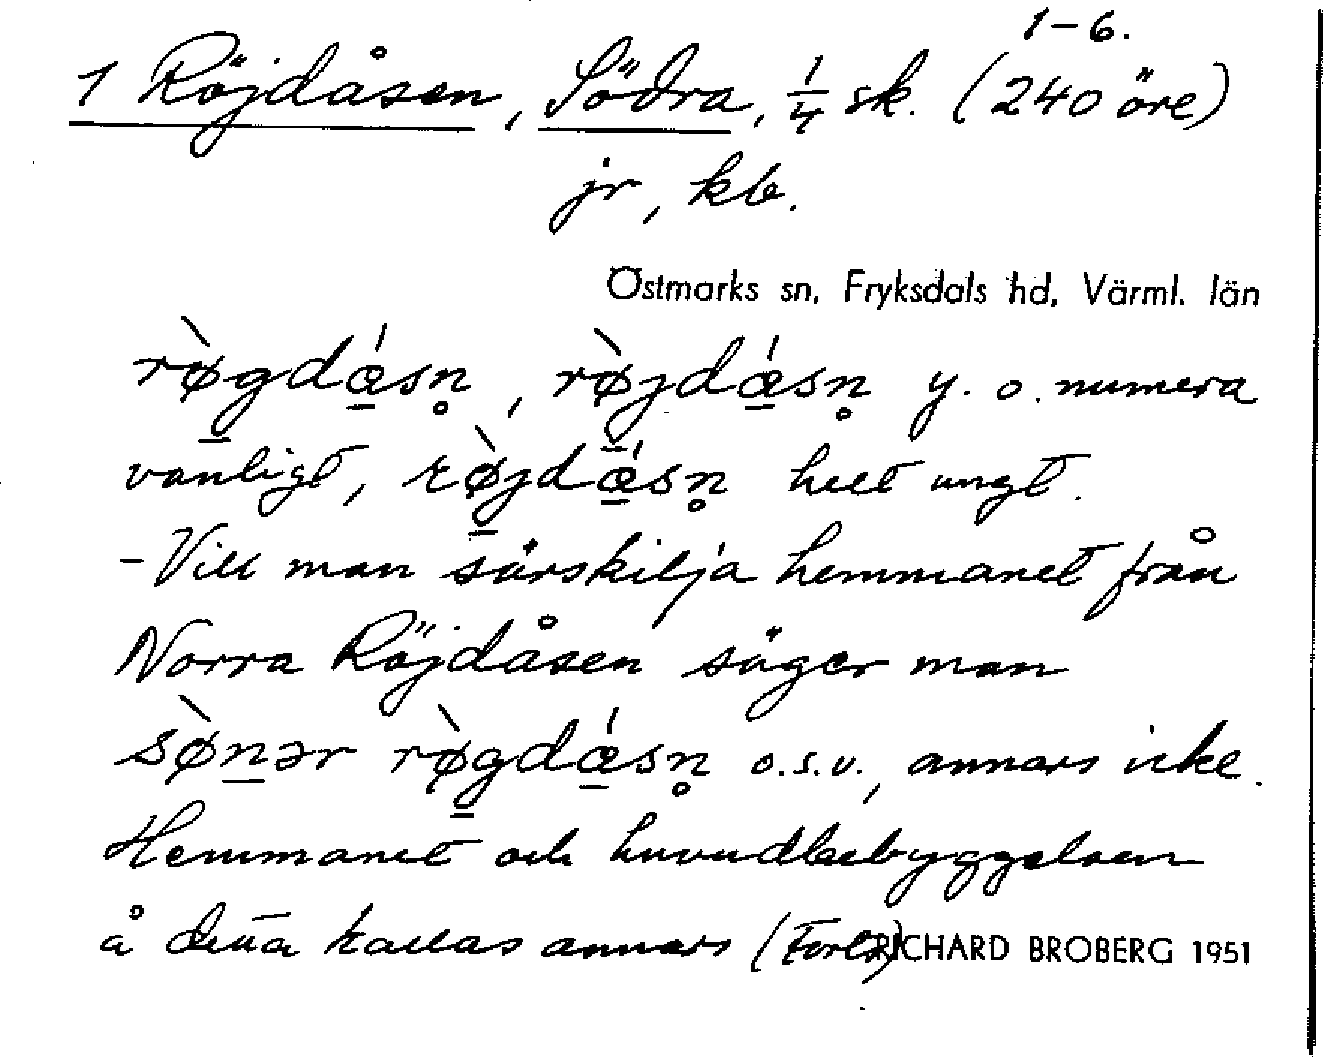 1-6.
1 Röjdåsen, Södra, 1/4 sk. (240 öre)
jr, kb.
Östmarks sn, Fryksdals hd, Värml. län
rø̀gdǽsn̥, rø̀jdǽsn̥ y. o. numera
vanligt, rø̀jdǽsn̥ helt ungt.
- Vill man särskilja hemmanet från
Norra Röjdåsen säger man
sø̀nər rø̀gdǽsn̥ o.s.v., annars icke.
Hemmanet och huvudbebyggelsen
å detta kallas annars (Forts)
RICHARD BROBERG 1951